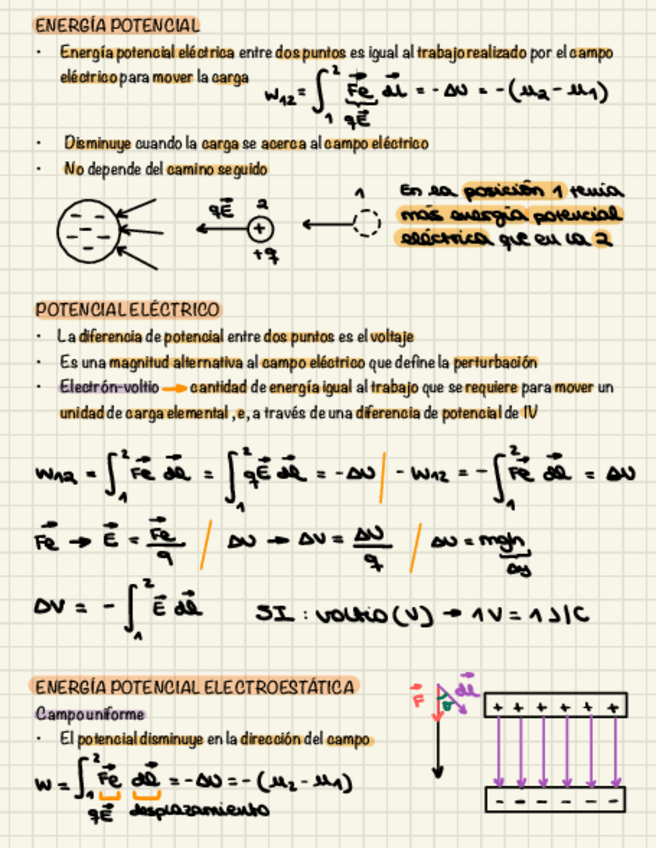 ENERGÍA POTENCIAL
· Energía potencial eléctrica entre dos puntos es igual al trabajo realizado por el campo
eléctrico para mover la carga
W₁₂ = ∫₁² F⃗e d⃗l = -ΔU = -(U₂ - U₁)
qE⃗
· Disminuye cuando la carga se acerca al campo eléctrico
· No depende del camino seguido
qE⃗ 2 1
+
+q
En la posición 1 tenía
más energía potencial
eléctrica que en la 2
POTENCIAL ELÉCTRICO
· La diferencia de potencial entre dos puntos es el voltaje
· Es una magnitud alternativa al campo eléctrico que define la perturbación
· Electrón-voltio → cantidad de energía igual al trabajo que se requiere para mover un
unidad de carga elemental, e, a través de una diferencia de potencial de 1V
W₁₂ = ∫₁² F⃗e d⃗l = ∫₁² qE⃗ d⃗l = -ΔU / -W₁₂ = -∫₁² F⃗e d⃗l = ΔU
F⃗e → E⃗ = F⃗e/q / ΔU → ΔV = ΔU/q / ΔU = mgh
Δy
ΔV = -∫₁² E⃗ d⃗l SI: voltio (V) → 1V = 1 J/C
ENERGÍA POTENCIAL ELECTROESTÁTICA
F⃗ θ d⃗l
Campo uniforme
+ + + + + +
· El potencial disminuye en la dirección del campo
W = ∫₁² F⃗e d⃗l = -ΔU = -(U₂ - U₁)
- - - - - -
qE⃗ desplazamiento